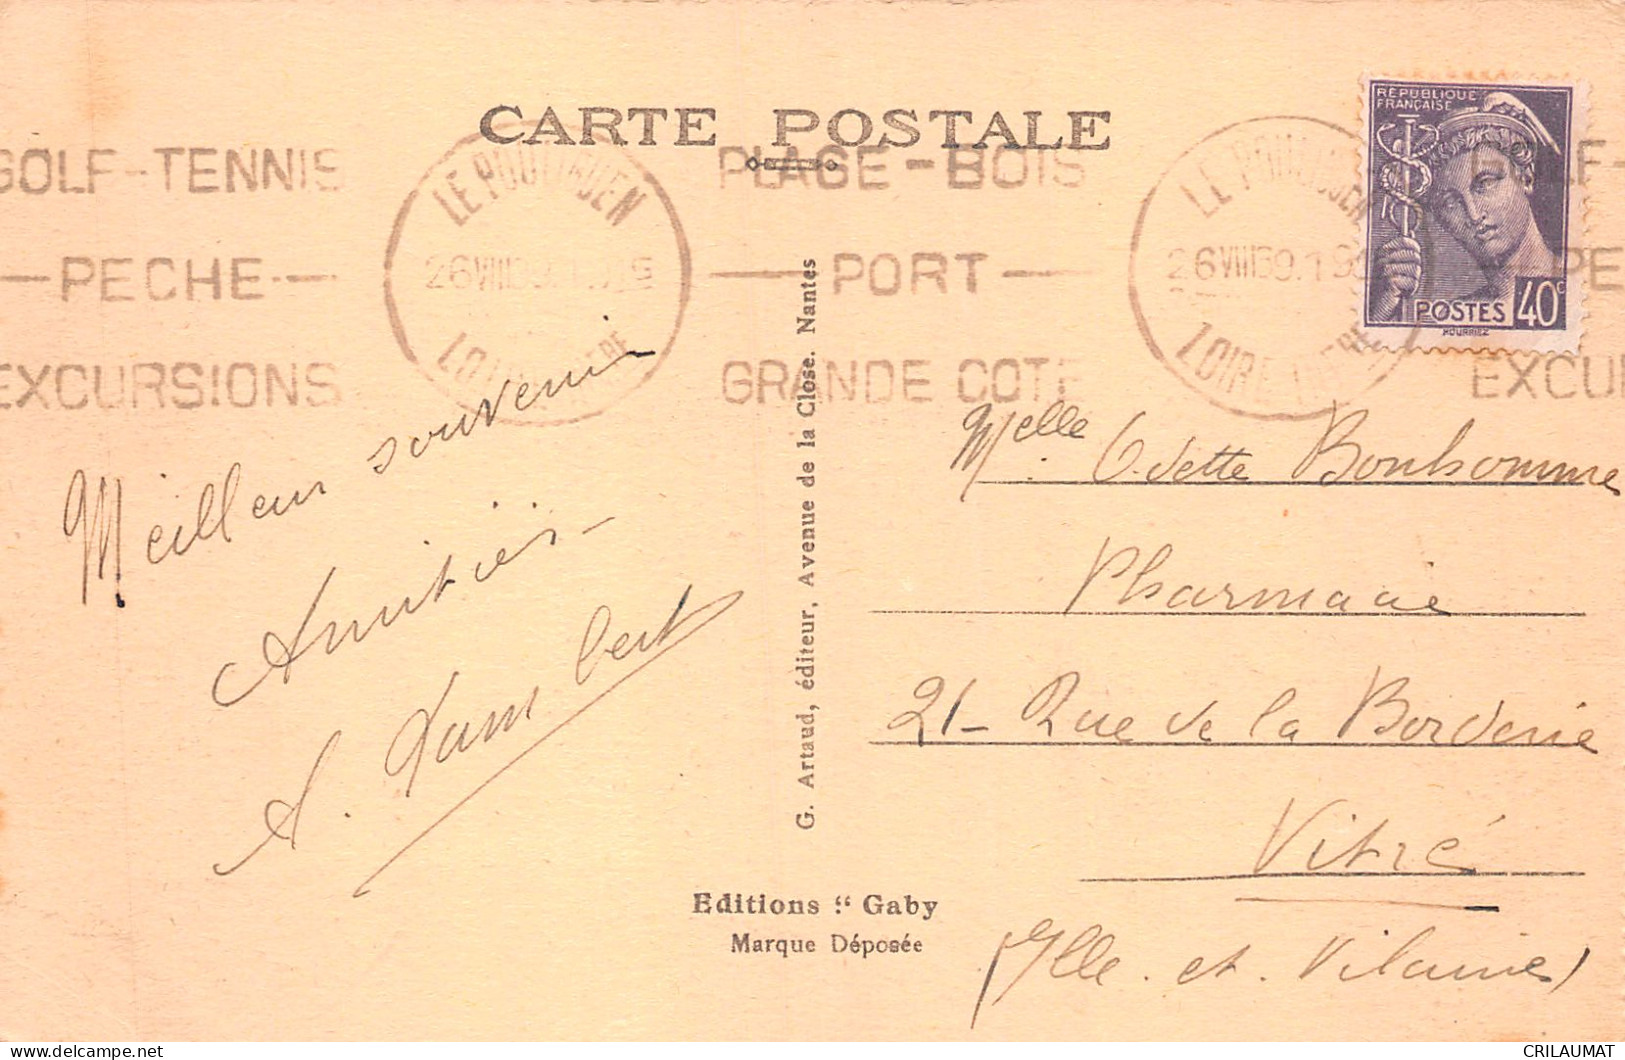 CARTE POSTALE
GOLF-TENNIS
— PECHE —
EXCURSIONS
LE POULIGUEN
LOIRE INFRE
PLAGE - BOIS
— PORT —
GRANDE COTE
LE POULIGUEN
26 VIII 39.19
LOIRE INFRE
RÉPUBLIQUE
FRANÇAISE
POSTES 40c
HOURRIEZ
EXCUR
Meilleur souvenir
Amitiés -
A. Lambert
G. Artaud, éditeur, Avenue de la Close. Nantes
Editions " Gaby
Marque Déposée
Melle Odette Bonhomme
Pharmacie
21 - Rue de la Borderie
Vitré
(Ille. et. Vilaine)
CRILAUMAT